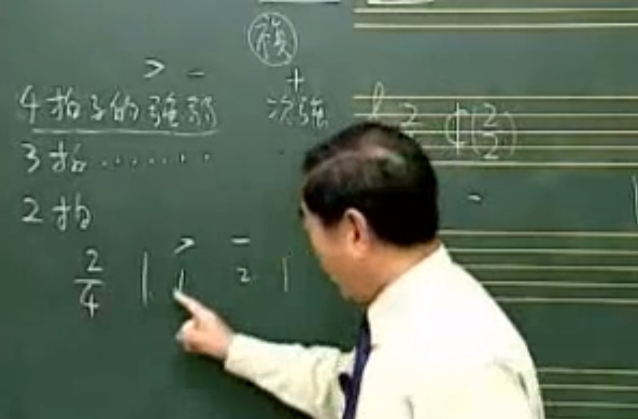 複
> －
4拍子的強弱 次強
+
3拍‥‥‥‥
2拍
> －
2/4 | 1 2 |
¢(2/2)